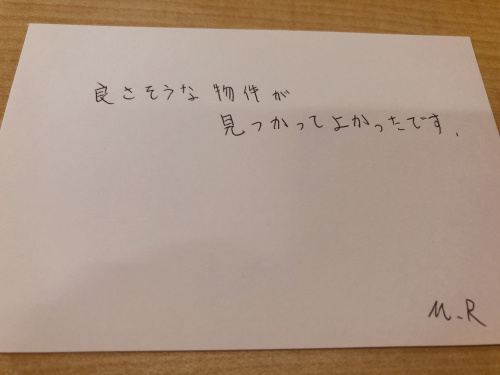 良さそうな物件が
見つかってよかったです.
M-R